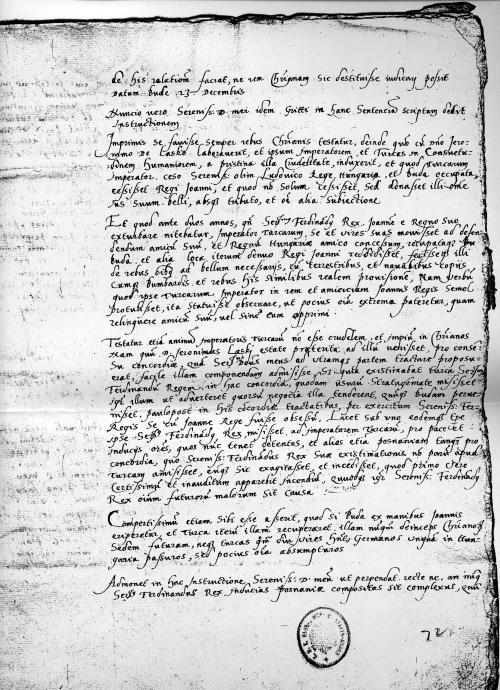 de his relationem faciat, ne rem Chrianam sic destituisse iudicary possit
Datum Bude 23 Decembris
Nuncio vero Sereniss: D. mei idem Gritti in hanc Sentenciam scriptam dedit
Instructionem
Imprimis se fauisse semper rebus Chrianis testatur, deinde quod cum dno Jero-
nimo de Lasko laborauerit, et ipsum Imperatorem, et Turcas in Consuetu-
dinem Humaniorem, a pristina illa Crudelitate, induxerit, et quod Turcarum
Imperator, ceso Sereniss: olim Ludouico Rege, Hungaria, et Buda occupata
cessisset Regi Joanni, et quod no solum cessisset, sed donasset illi omne
Ius suum belli, absque tributo, et oi alia subiectione.
Et quod ante duos annos, qn Serss: Ferdinandus Rex, Joanne e Regno suo
exturbare nitebatur, Imperator Turcarum, se et vires suas mouisset ad defen-
dendum amicum suum, et Regnum Hungariae amico concessum, recuperataque
Buda, et alia loca iterum denuo Regi Joanni reddidisset, fecissetque illi
de rebus oibus ad bellum necessarys, cum terrestribus, et naualibus copys
cumque Bombardis, et rebus his similibus realem prouisionem, Nam verbum
quod ipse Turcarum Imperator in rem et amiciciam Joannis Regis semel
protulisset, ita statuisse obseruare, ut pocius oia extrema pateretur, quam
relinquere amicum suum, vel sinere eum opprimi.
Testatur etiam animum Imperatoris Turcarum no esse crudelem, et impium in Chrianos
Nam quum D. Jeronimus Lasky estate preterita ad illum venisset, pro conse
su concordiae, quam Serss: Dnus meus ad utramque partem tractare proposu
erat, facile illam componendam admisisse. Si quia existimabat Turca Serssm
Ferdinandum Regem, in hac concordia, quodam usurum Stratagemate misisset
ipse illum ut aduerteret quorsum negocia illa tenderent, quumque Budam perue-
nisset, paulopost in his concordiae tractatibus, per exercitum Sereniss: Fer
Regis se cum Joanne Rege fuisse obsessum, Licet sub uno eodemque tpe
ipse Serss: Ferdinandus Rex misisset, ad Imperatorem Turcarum, pro pace et
Inducys ores, quos nunc tenet detentos, et alios etiam Posnaniam tanquam pro
concordia, quo Sereniss: Ferdinandus Rex suae existimationis no parum apud
Turcam amisisset, eumque sic exagitasset, et incedisset, quod primo Vere
Certissimum et inauditum apparebit Incendium, quodque ipse Sereniss: Ferdinandus
Rex oium futurorum malorum sit causa.
Compertissimum etiam sibi esse asserit, quod si Buda ex manibus Joannis
eriperetur, et Turca iterum illam recuperaret, illam nunquam deinceps Chrianorum
sedem futuram, neque Turcas quam diu vires habet Germanos unquam in Hun-
garia passuros, sed pocius oia absumpturos
Admonet in hac Instructione, Sereniss: D. meum ut perpendat recte ne, an
Serss: Ferdinandus Rex Inducias Posnaniae compositas sit complexus, qui
721